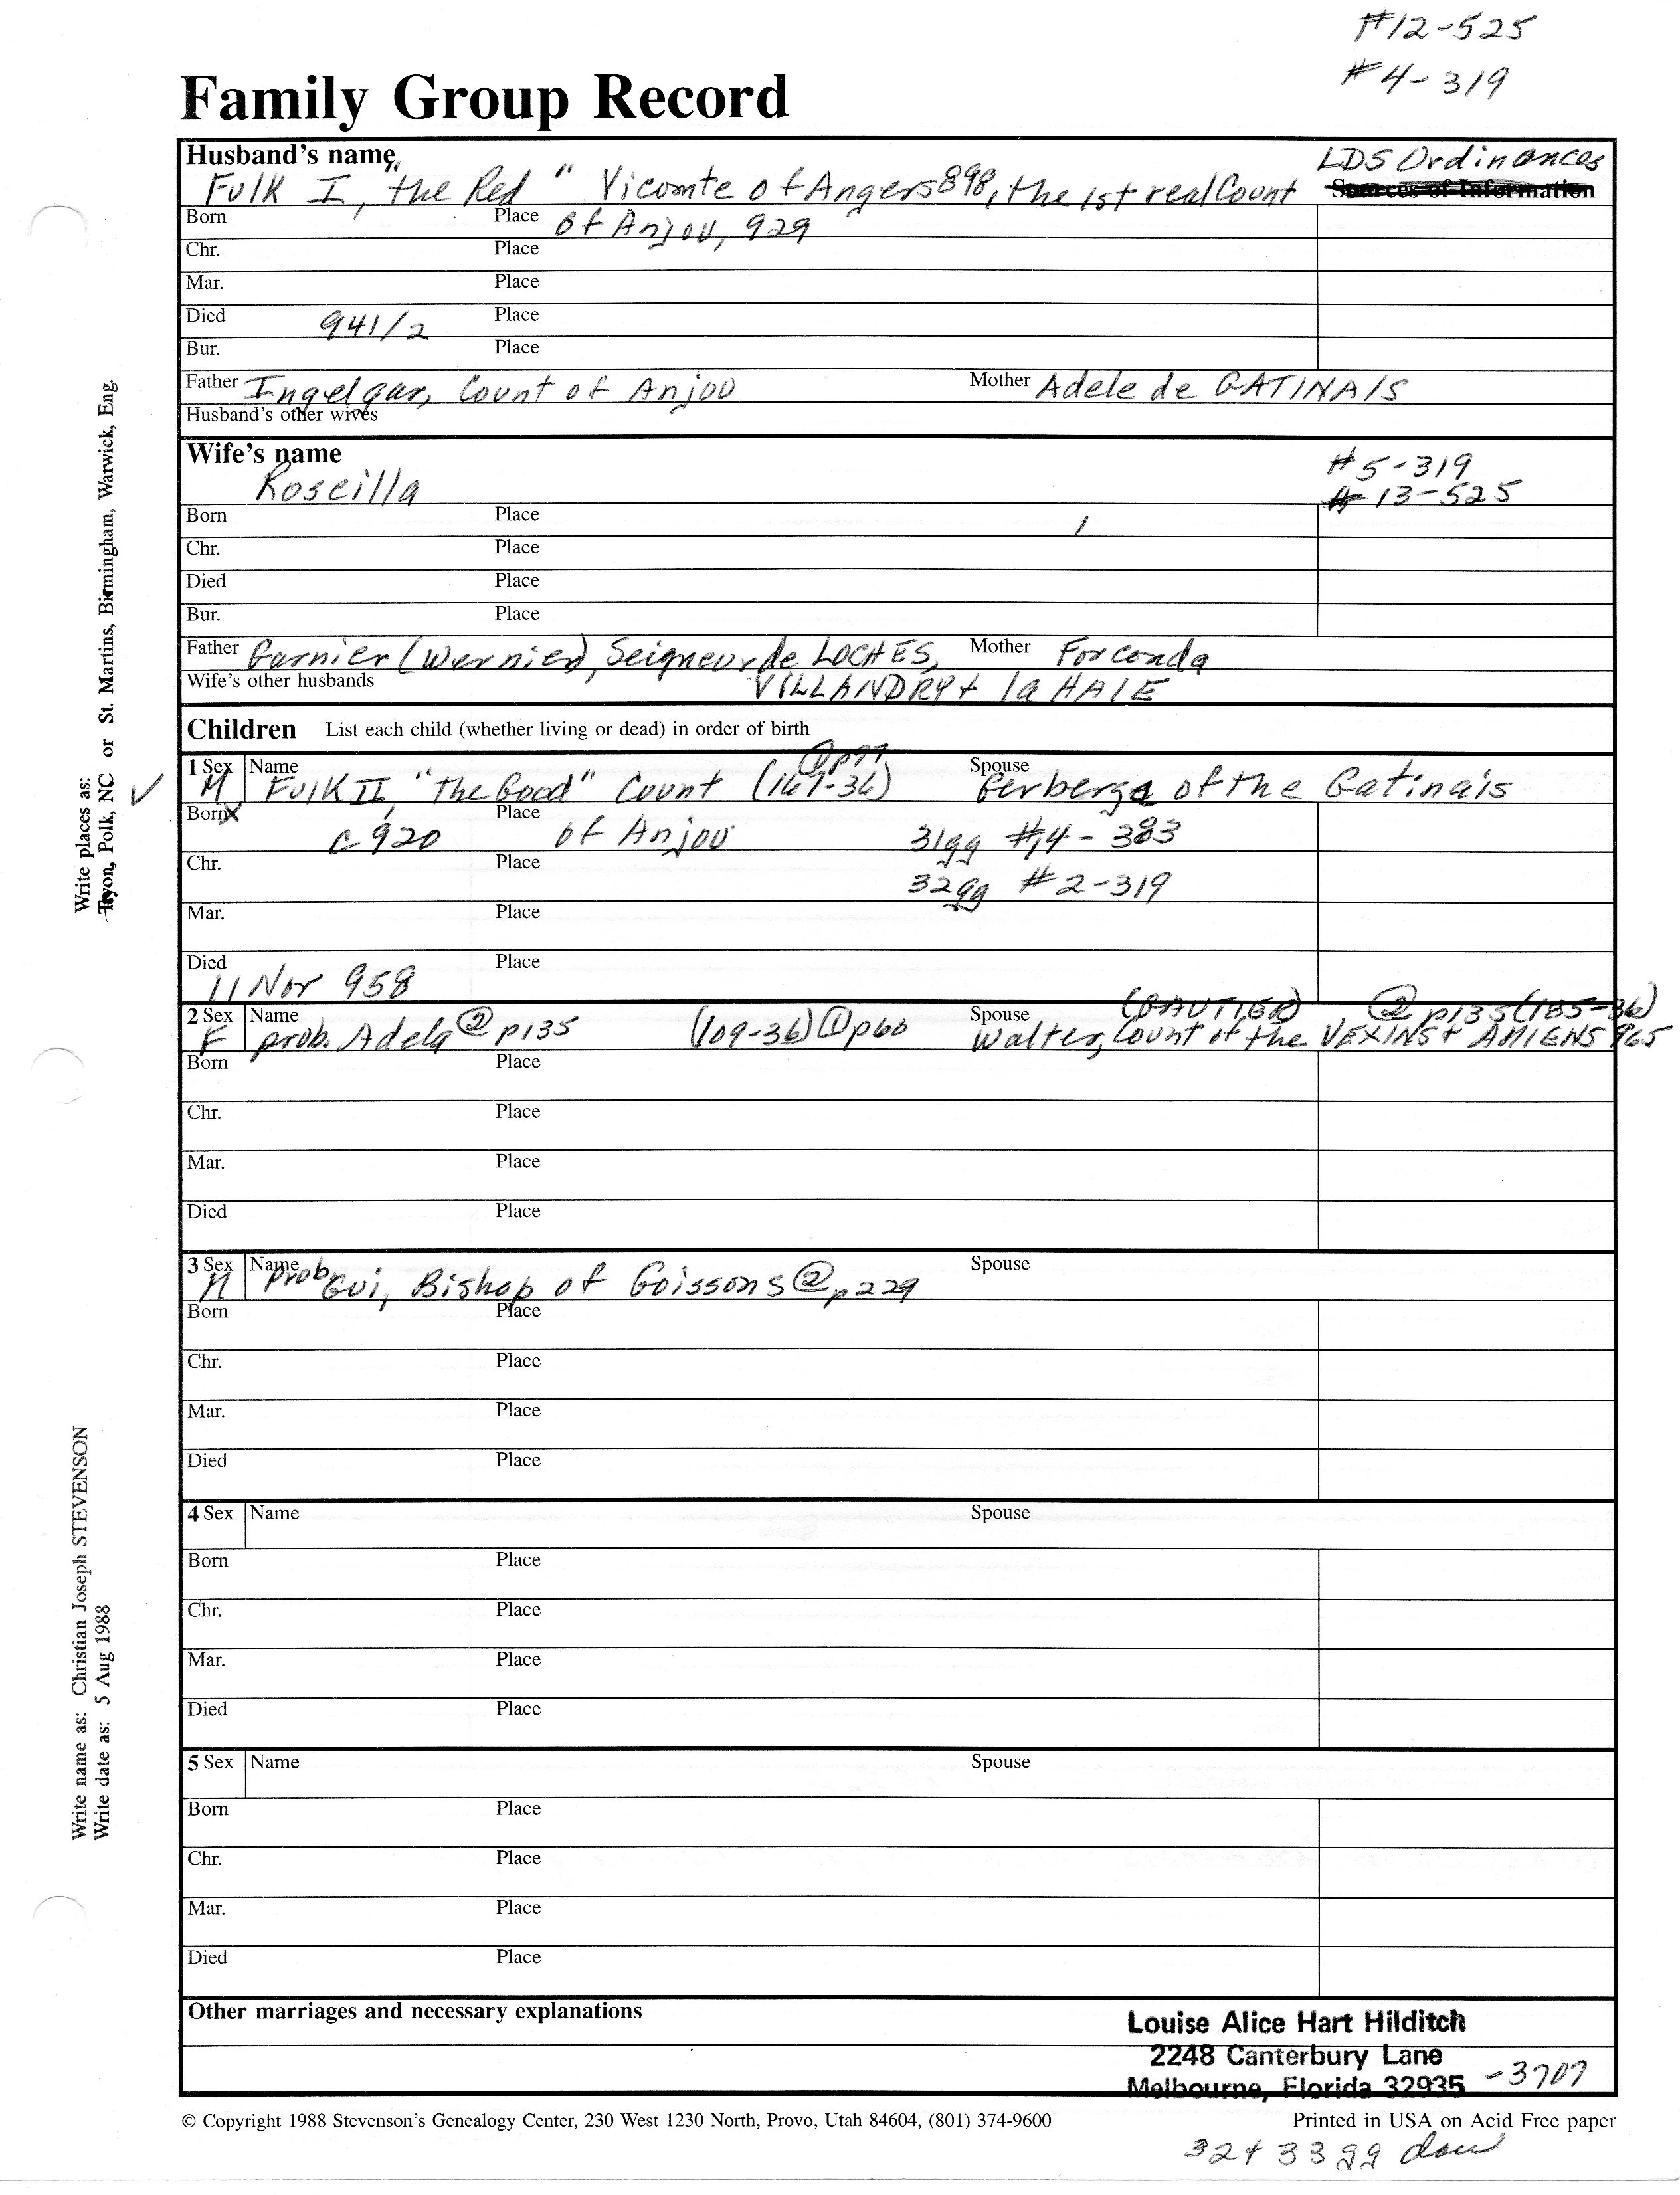 #12-525
#4-319
Family Group Record
Husband's name
LDS Ordinances
Fulk I, "the Red" Vicomte of Angers 898, the 1st real Count
Sources of Information
Born Place of Anjou, 929
Chr. Place
Mar. Place
Died 941/2 Place
Bur. Place
Father Ingelgar, Count of Anjou Mother Adele de GATINAIS
Husband's other wives
Wife's name
#5-319
Roscilla
#13-525
Born Place
Chr. Place
Died Place
Bur. Place
Father Garnier (Wernier), Seigneur de LOCHES, Mother Forconda
Wife's other husbands VILLANDRY + la HAIE
Children List each child (whether living or dead) in order of birth
① p97
1 Sex M Name Fulk II, "the Good" Count (167-36) Spouse Gerberga of the Gatinais
Born X c 920 Place of Anjou 31gg #14-383
Chr. Place 32gg #2-319
Mar. Place
Died 11 Nov 958 Place
(GAUTIER) ② p135 (185-36)
2 Sex F Name prob. Adela ② p135 (109-36) ① p60 Spouse Walter, Count of the VEXINS + AMIENS 965
Born Place
Chr. Place
Mar. Place
Died Place
3 Sex M Name Prob Gui, Bishop of Soissons ② p229 Spouse
Born Place
Chr. Place
Mar. Place
Died Place
4 Sex Name Spouse
Born Place
Chr. Place
Mar. Place
Died Place
5 Sex Name Spouse
Born Place
Chr. Place
Mar. Place
Died Place
Other marriages and necessary explanations
Louise Alice Hart Hilditch
2248 Canterbury Lane
Melbourne, Florida 32935 -3707
© Copyright 1988 Stevenson's Genealogy Center, 230 West 1230 North, Provo, Utah 84604, (801) 374-9600 Printed in USA on Acid Free paper
32 + 33 gg dau
Write places as:
Tryon, Polk, NC or St. Martins, Birmingham, Warwick, Eng.
Write name as: Christian Joseph STEVENSON
Write date as: 5 Aug 1988